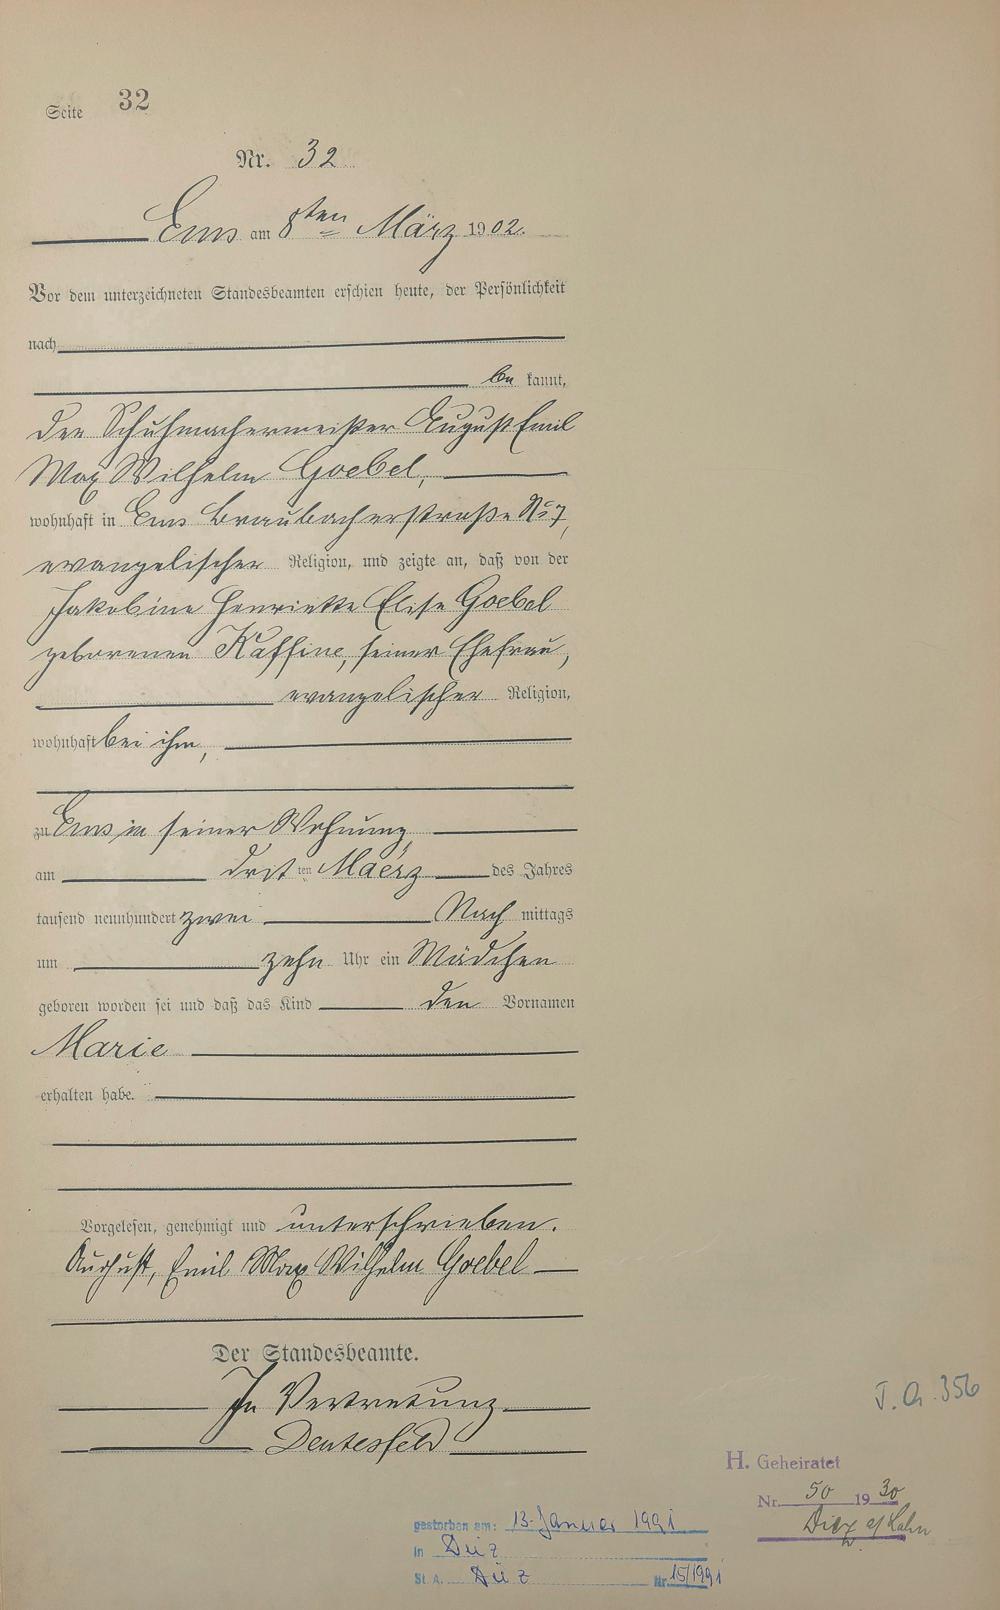 Seite 32
Nr. 32
Ems am 8ten März 1902.
Vor dem unterzeichneten Standesbeamten erschien heute, der Persönlichkeit
nach
be kannt,
der Schuhmachermeister August Emil
Max Wilhelm Goebel,
wohnhaft in Ems Braubacherstraße No 7,
evangelischer Religion, und zeigte an, daß von der
Jakobine Henriette Elise Goebel
geborenen Kaffine, seiner Ehefrau,
evangelischer Religion,
wohnhaft bei ihm,
zu Ems in seiner Wohnung,
am dritten Maerz des Jahres
tausend neunhundert zwei Nach mittags
um zehn Uhr ein Mädchen
geboren worden sei und daß das Kind den Vornamen
Marie
erhalten habe.
Vorgelesen, genehmigt und unterschrieben.
August, Emil Max Wilhelm Goebel
Der Standesbeamte.
In Vertretung
Deutesfeld
J. G. 356
H. Geheiratet
Nr. 50 1930
Diez a/Lahn
gestorben am: 13. Januar 1991
in Diez
St. A. Diez Nr. 15/1991